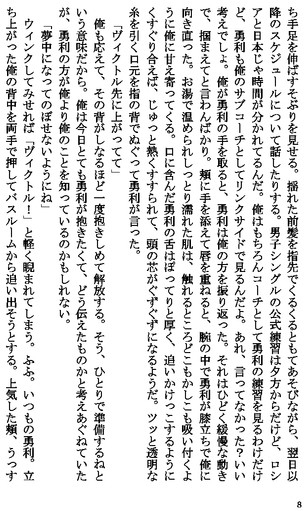 ち手足を伸ばすそぶりを見せる。揺れた前髪を指先でくるくるともてあそびながら、翌日以
降のスケジュールについて話したりする。男子シングルの公式練習は夕方からだけど、ロシ
アと日本じゃ時間が分かれてるんだ。俺はもちろんコーチとして勇利の練習を見るわけだけ
ど、勇利も俺のサブコーチとしてリンクサイドで見るんだよ。あれ、言ってなかった？いい
考えでしょ。俺が勇利の手を取ると、勇利は俺の方を振り返った。それはひどく緩慢な動き
で、掴まえてと言わんばかり。頬に手を添えて唇を重ねると、腕の中で勇利が膝立ちで俺に
向き直った。お湯で温められしっとり濡れた肌は、触れるところどこもかしこも吸い付くよ
うに俺に甘え寄ってくる。口に含んだ勇利の舌はぽってりと厚く、追いかけっこするように
くすぐり合えば、じゅっと熱くすすられて、頭の芯がぐずぐずになるようだ。ツッと透明な
糸を引く口元を指の背でぬぐって勇利が言った。
「ヴィクトル先に上がってて」
俺も応えて、その背がしなるほど一度抱きしめて解放する。そう、ひとりで準備するねと
いう意味だから。俺は今日とても勇利が抱きたくて、どう伝えたものかと考えあぐねていた
が、勇利の方が俺より俺のことを知っているのかもしれない。
「夢中になってのぼせないようにね」
ウィンクしてみせれば「ヴィクトル！」と軽く睨まれてしまう。ふふ。いつもの勇利。立
ち上がった俺の背中を両手で押してバスルームから追い出そうとする。上気した頬、うっす
8